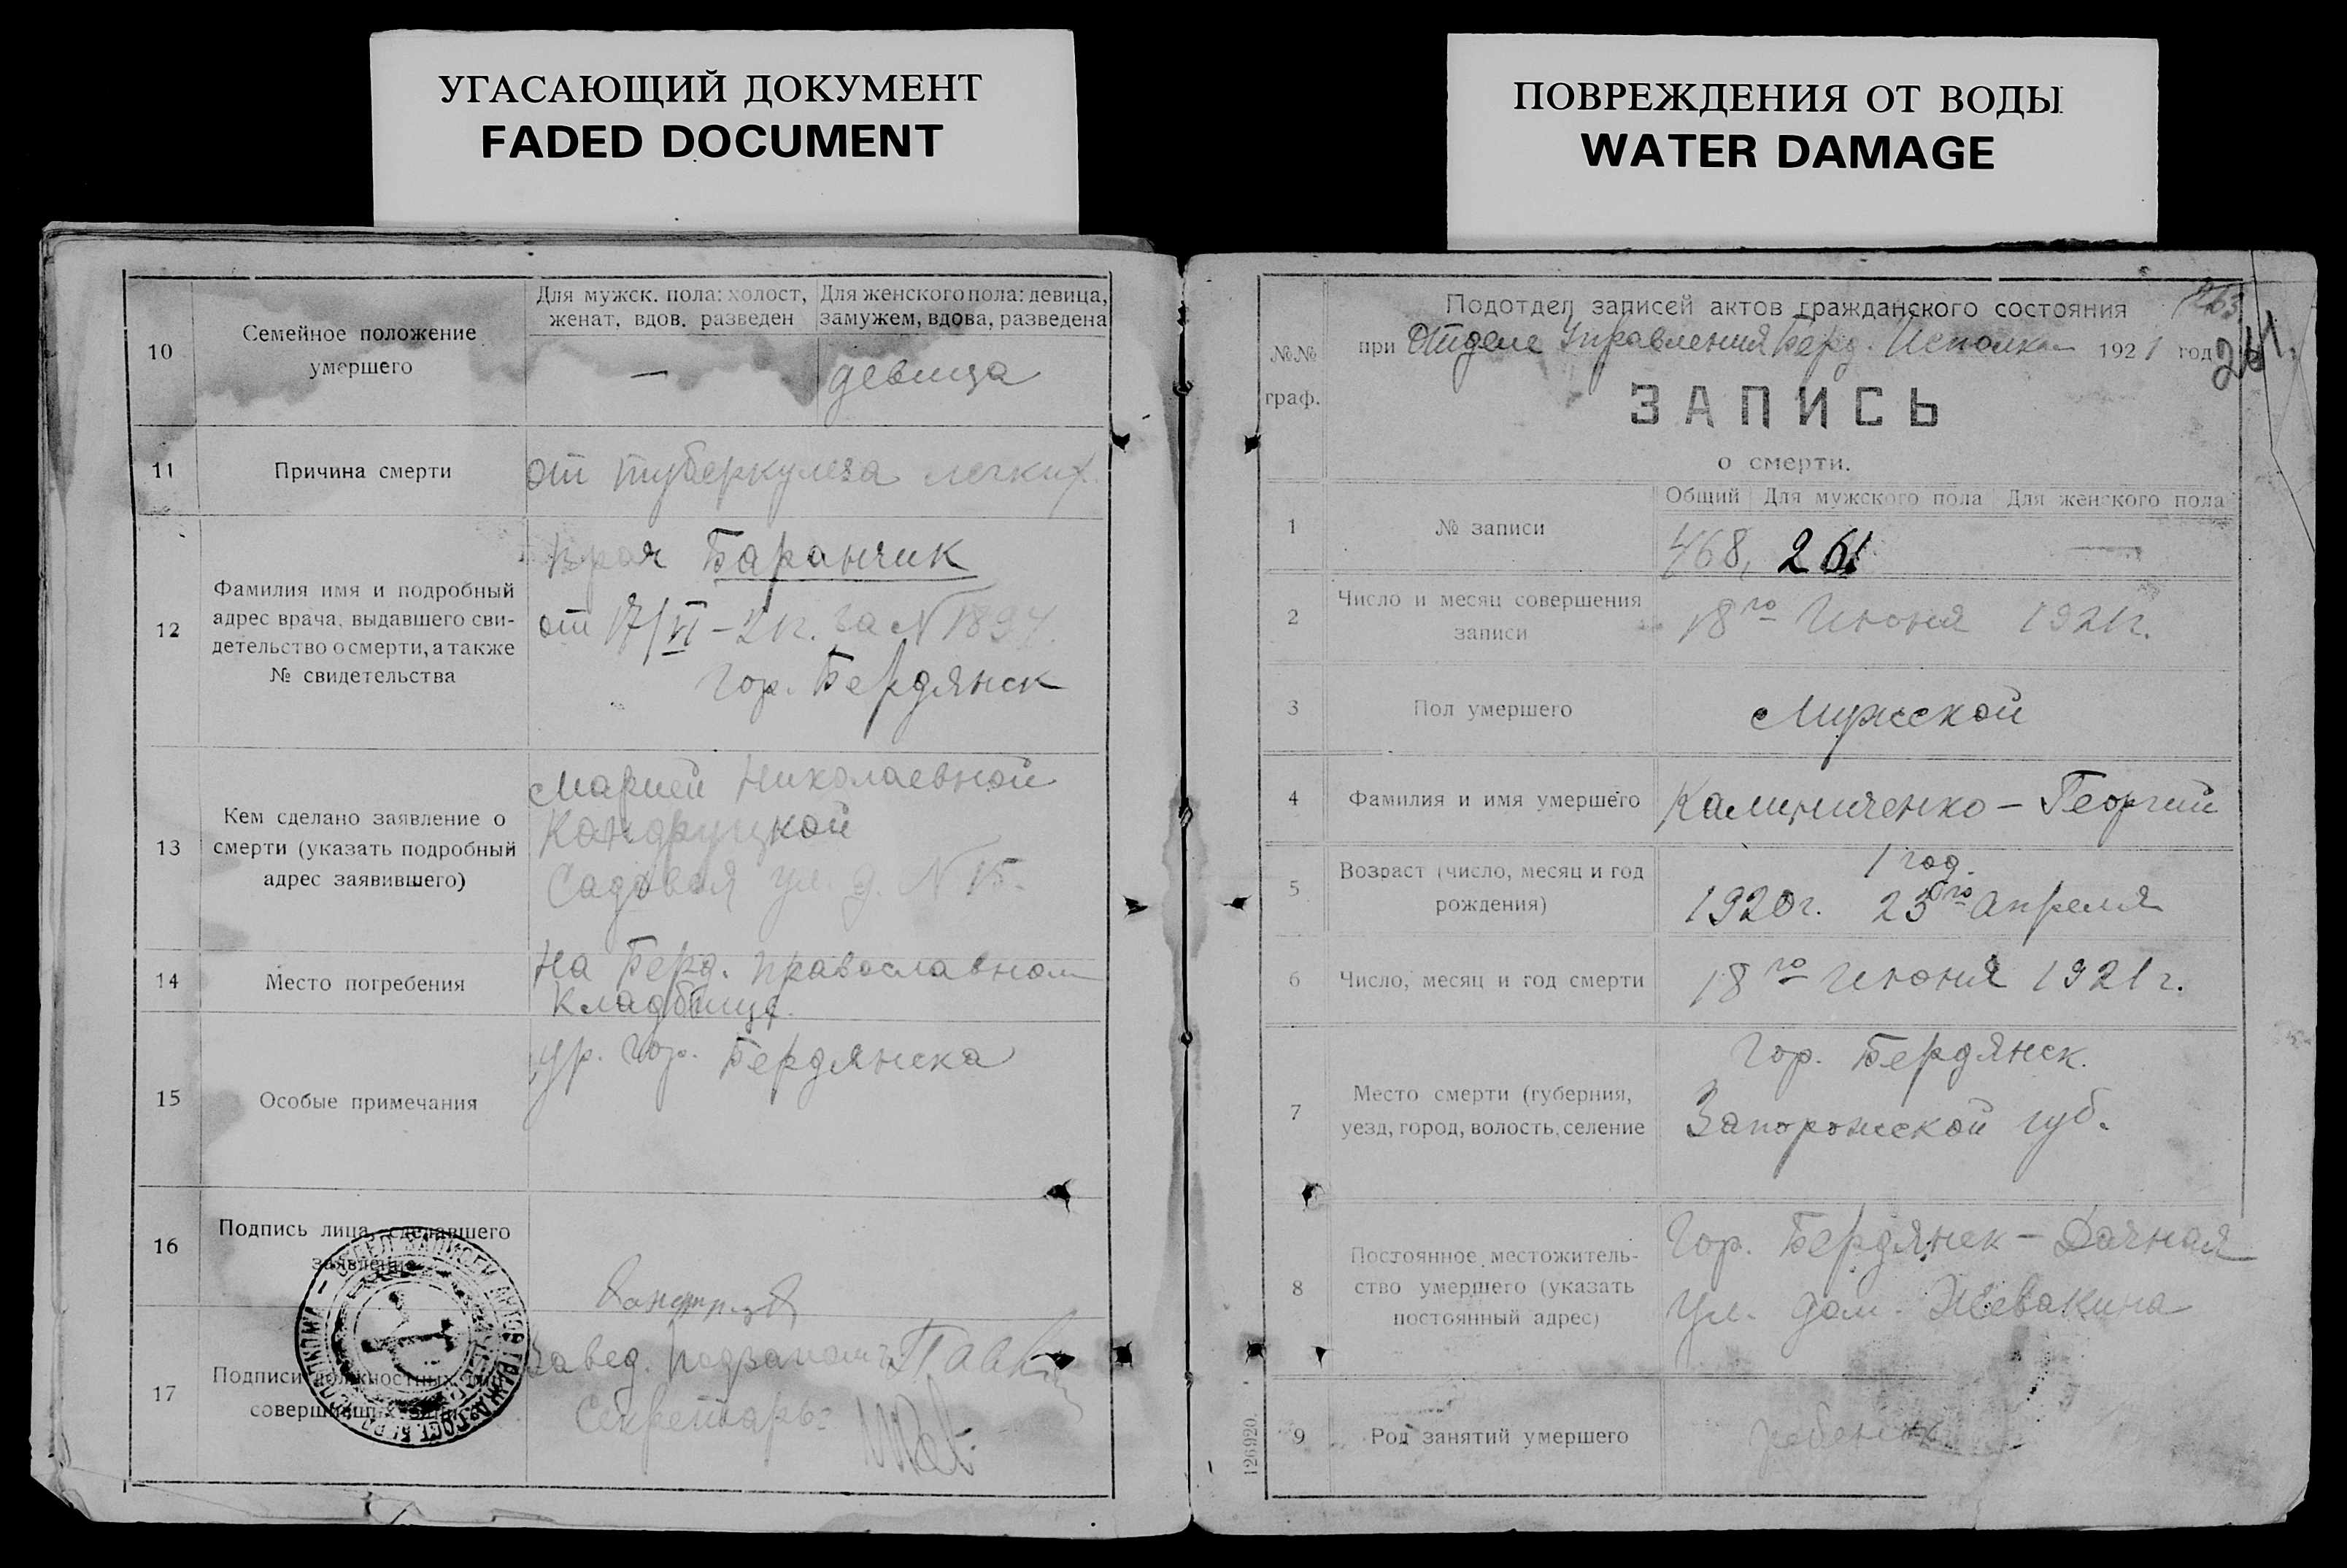 УГАСАЮЩИЙ ДОКУМЕНТ
FADED DOCUMENT
ПОВРЕЖДЕНИЯ ОТ ВОДЫ
WATER DAMAGE
10
Семейное положение
умершего
Для мужск. пола: холост,
женат, вдов, разведен
Для женского пола: девица,
замужем, вдова, разведена
—
девица
11
Причина смерти
от туберкулеза легких.
12
Фамилия имя и подробный
адрес врача, выдавшего сви-
детельство о смерти, а также
№ свидетельства
врач Баранчик
от 17/VI – 21 г. за №
гор. Бердянск
13
Кем сделано заявление о
смерти (указать подробный
адрес заявившего)
Марией Николаевной
Садовая ул. д. № 15.
14
Место погребения
На Берд. православном
кладбище.
15
Особые примечания
ур. гор. Бердянска
16
Подпись лица, сделавшего
заявление
17
Подписи должностных лиц,
совершивших запись
Завед.
Секретарь:
Подотдел записей актов гражданского состояния
при Отделе Управления Берд. Исполком 1921 год
263
261.
№№
граф.
ЗАПИСЬ
о смерти.
1
№ записи
Общий
Для мужского пола
Для женского пола
468, 261
—
2
Число и месяц совершения
записи
18го Июня 1921 г.
3
Пол умершего
Мужской
4
Фамилия и имя умершего
Калиниченко – Георгий
5
Возраст (число, месяц и год
рождения)
1 год.
1920 г. 23го Апреля
6
Число, месяц и год смерти
18го Июня 1921 г.
7
Место смерти (губерния,
уезд, город, волость, селение
Гор. Бердянск.
Запорожской губ.
8
Постоянное местожитель-
ство умершего (указать
постоянный адрес)
Гор. Бердянск – Дачная
ул. дом. Жевакина
9
Род занятий умершего
ребенок
126920.